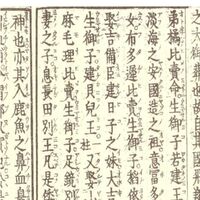 弟橘比賣命生御子若建王
淡海之安國造之祖意富多
女布多遲比賣生御子稻依
娶吉備臣建日子之妹大吉
生御子建貝兒王柱又娶
麻毛理比賣生御子足鏡別
妻之子息長田別王凡是倭
神也亦其入鹿魚之鼻血